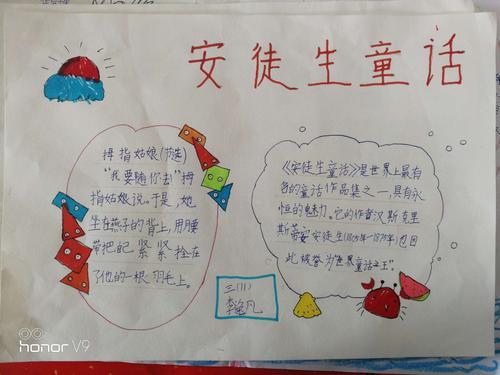 安徒生童话
拇指姑娘(节选)
“我要随你去”拇
指姑娘说。于是,她
坐在燕子的背上,用腰
带把自己紧紧拴在
了他的一根羽毛上。
《安徒生童话》是世界上最有
名的童话作品集之一,具有永
恒的魅力。它的作者汉斯克里
斯蒂安安徒生(1805年-1875年)也因
此被誉为“世界童话之王”。
三(11)
李逸凡
honor V9